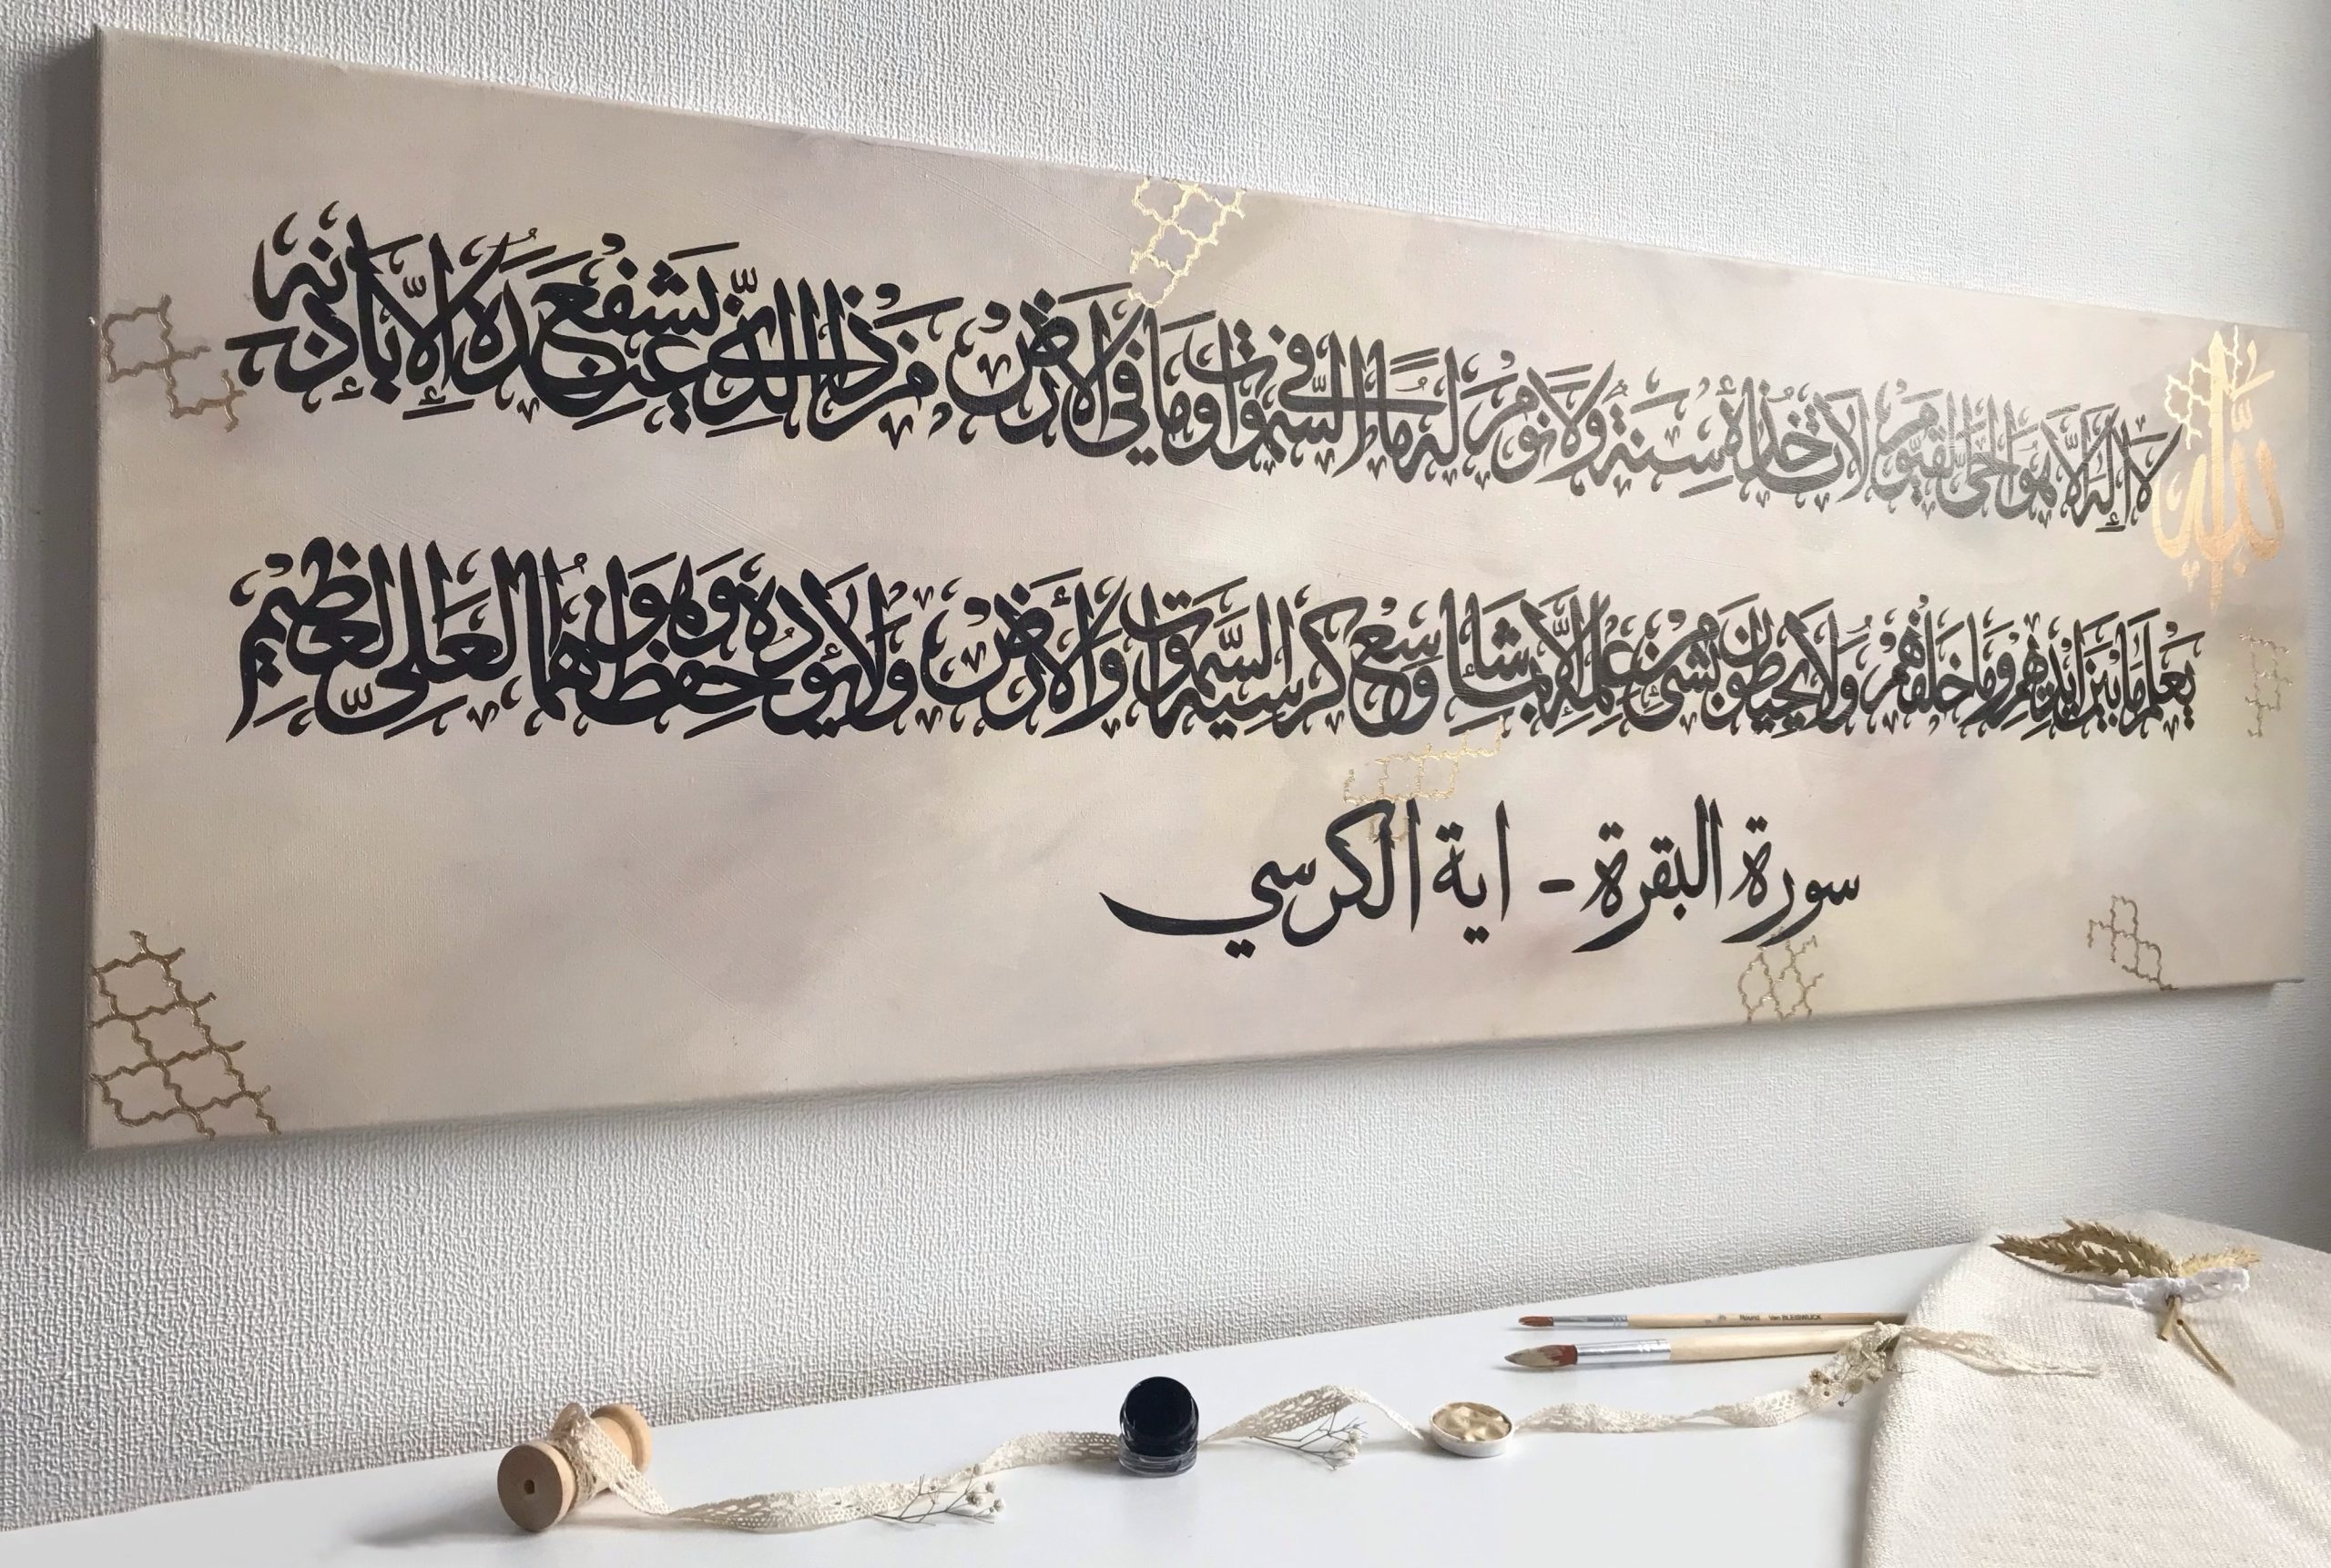 الله لا إله إلا هو الحي القيوم لا تأخذه سنة ولا نوم له ما في السموات وما في الأرض من ذا الذي يشفع عنده إلا بإذنه
يعلم ما بين أيديهم وما خلفهم ولا يحيطون بشيء من علمه إلا بما شاء وسع كرسيه السموات والأرض ولا يؤده حفظهما وهو العلي العظيم
سورة البقرة - اية الكرسي
Round Van BLEISWIJCK